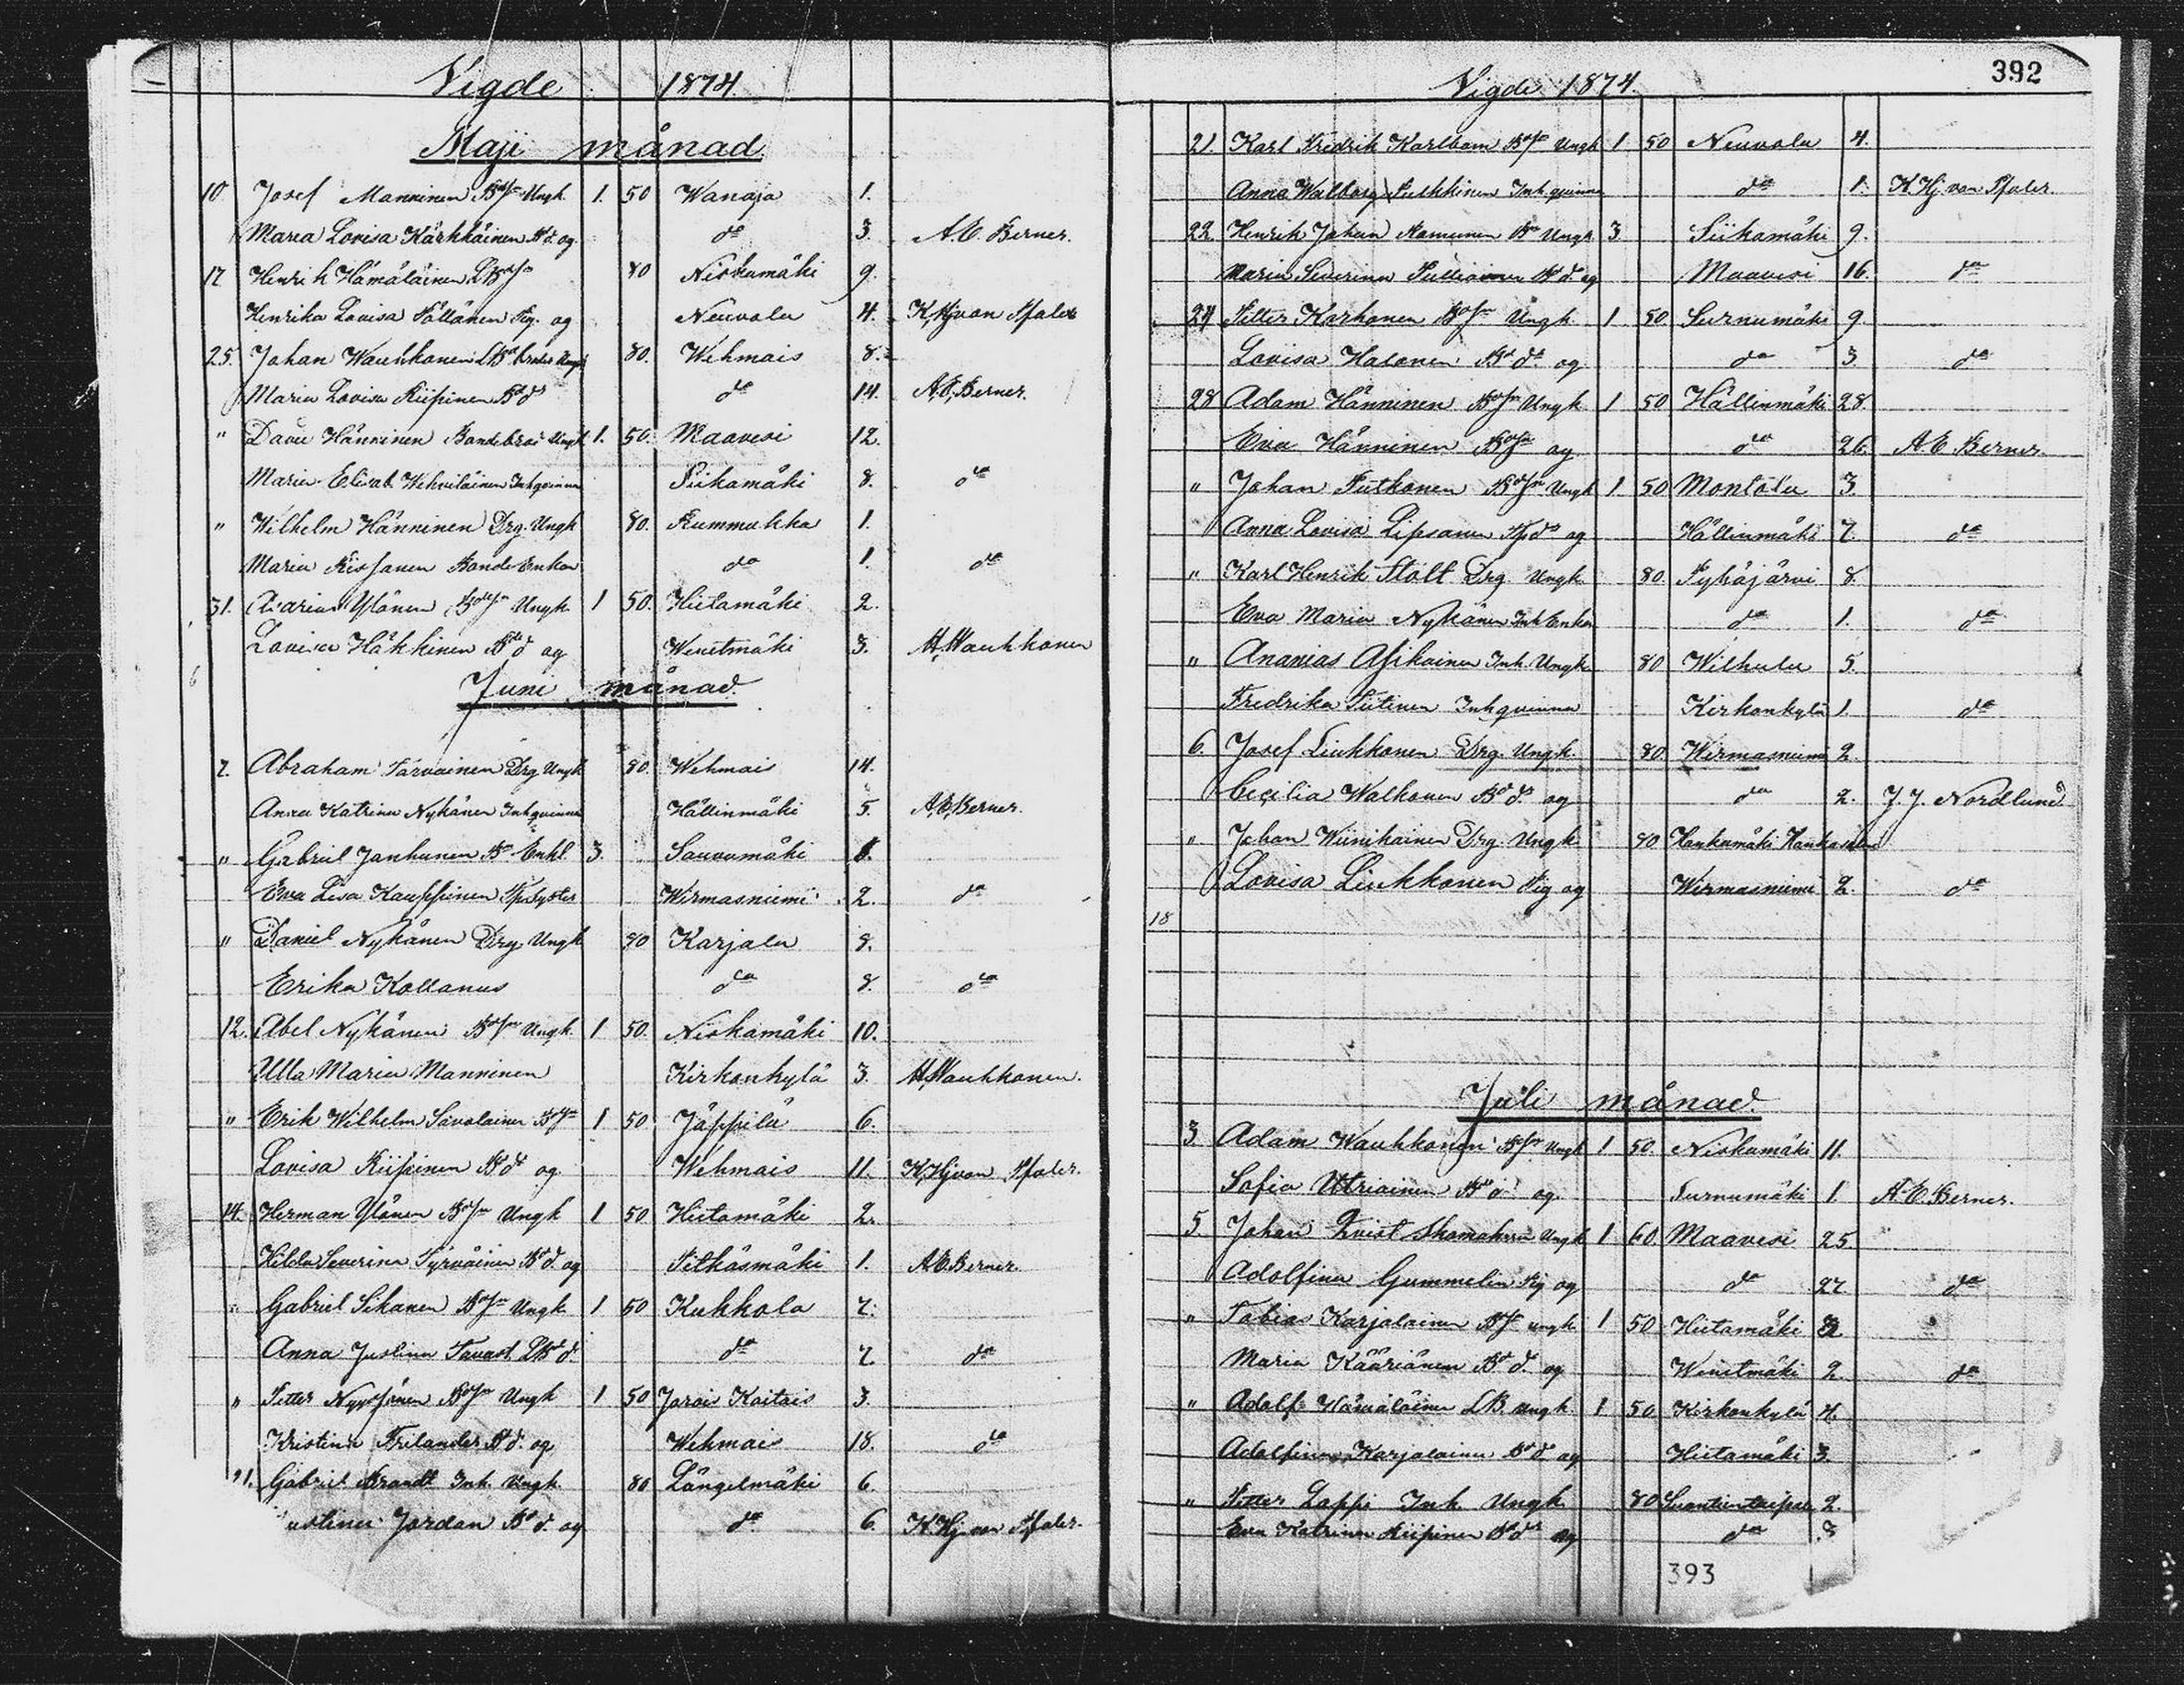 Vigde 1874.
Maji månad.
10 Josef Manninen Bdsn Ungk. 1. 50 Wanaja 1.
Maria Lovisa Kärkkäinen Bd. og. do 3. A. E. Berner.
17 Henrik Hämäläinen LBdsn 80 Niskamäki 9.
Henrika Lovisa Pällänen Pig. og Neuvola 4. K, Hj von Pfaler
25. Johan Wauhkonen LBd broder Ungk 80. Wehmais 8.
Maria Lovisa Riipinen Bdd do 14. A, E, Berner.
" Hänninen Bondebror Ungk 1. 50. Maavesi 12.
Maria Elisab. Wehviläinen Inhqvinna Siikamäki 8. do
" Wilhelm Hänninen Drg. Ungk 80. Kummukka 1.
Maria Bonde Enkan do 1. do
31. Ylönen Bdesn Ungk. 1 50. Hietamäki 2.
Lovisa Häkkinen Bdd og Wenetmäki 3. H, Wauhkonen
6
Juni månad.
7. Abraham Tarvainen Drg Ungk 80. Wehmais 14.
Anna Katrina Nykänen Inhqvinna Hällinmäki 5. A, E, Berner.
" Gabriel Janhunen Bd Enkl 3. Sauvamäki
Eva Lisa Kauppinen syster Wirmasniemi 2. do
" Daniel Nykänen Drg Ungk 80 Karjala 8.
Erika Kollanus do 8. do
12. Abel Nykänen Bdsn Ungk. 1 50. Niskamäki 10.
Ulla Maria Manninen Kirkonkylä 3. H, Wauhkonen.
" Erik Wilhelm Savolainen Bdsn 1 50 Jäppilä 6.
Lovisa Riipinen Bdd og. Wehmais 11. K, Hj von Pfaler.
14. Herman Ylönen Bdsn Ungk 1 50 Hietamäki 2.
Hilda Severina Tyrväinen Bd d. og Pitkäsmäki 1. A E. Berner
" Gabriel Sikanen Bdsn Ungk 1 50 Kukkola 7.
Anna Justina Tavast LBd d. do 7. do
" Petter Nyyssönen Bdsn Ungk 1 50 Jorois Kaitais 3.
Kristina Frilander Bd d. og Wehmais 18. do
21. Gabriel Brandt Inh. Ungk. 80 Längelmäki 6.
ustina Jordan Bd d. og do 6. K. Hj. von Pfaler.
392
Vigde 1874.
21. Karl Fredrik Karlbom Bdsn Ungk 1 50 Neuvola 4.
Anna Walborg Puhkinen Inh. qvinna do 1. K. Hj. von Pfaler.
22. Henrik Johan Bd Ungk. 3. Siikamäki 9.
Maria Severina Bd d. og Maavesi 16. do
24 Petter Karhonen Bdsn Ungk. 1 50. Surnumäki 9.
Lovisa Halonen Bd do. og do 3. do
28 Adam Hänninen Bdsn Ungk. 1 50 Hällinmäki 28.
Eva Hänninen og do 26. A. E. Berner.
" Johan Putkonen Bdsn Ungk 1 50 Montola 3.
Anna Lovisa Lipsanen og Hällinmäki 7. do
" Karl Henrik Stolt Drg. Ungk. 80. Pyhäjärvi 8.
Eva Maria Nykänen Inh Enka do 1. do
" Ananias Asikainen Inh. Ungk 80 Wilhula 5.
Fredrika Pütinen Inhqvinna Kirkonkylä 1. do
6. Josef Liukkonen Drg. Ungk. 80. Wirmasniemi 2.
Cecilia Walkonen Bd d. og do 2. J. J. Nordlund
" Johan Wiinikainen Drg. Ungk. 80 Haukamäki
Lovisa Liukkonen Pig og Wirmasniemi 2. do
18
Juli månad.
3. Adam Wauhkonen Bdsn Ungk 1 50. Niskamäki 11.
Sofia Utriainen Bd d og Surnumäki 1. A. E. Berner.
5. Johan Qvist Skomakrsn Ungk 1 60. Maavesi 25.
Adolfina Gummelin Pig og do 27 do
" Tobias Karjalainen Bdsn ungk. 1 50 Hietamäki
Maria Kääriänen Bd d. og Wenetmäki 2. do
" Adolf Hämäläinen LB. ungk. 1 50. Kirkonkylä 4.
Adolfina Karjalainen Bd d og Hietamäki 3.
" Petter Lappi Inh. Ungk 80 2.
Eva Katrina Riipinen Bd d og do 3
393